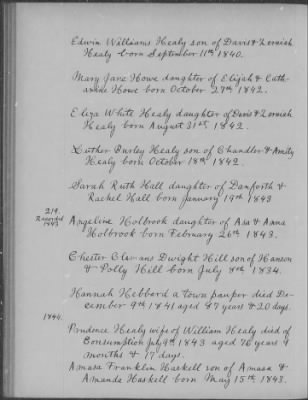 Edwin Williams Healy son of Davis & Zerviah
Healy born September 11th 1840.
Mary Jane Howe daughter of Elijah & Cath-
arine Howe born October 27th 1842.
Eliza White Healy daughter of Davis & Zerviah
Healy born August 31st 1842.
Luther Burley Healy son of Chandler & Amity
Healy born October 18th 1842.
Sarah Ruth Hall daughter of Danforth &
Rachel Hall born January 19th 1843
219.
Recorded
1843
Angeline Holbrook daughter of Asa & Anna
Holbrook born February 26th 1843.
Chester Clevans Dwight Hill son of Hanson
& Polly Hill born July 8th 1834.
Hannah Hebberd a town pauper died De-
cember 9th 1841 aged 87 years & 20 days.
1844.
Prudence Healy wife of William Healy died of
Consumption July 9th 1843 aged 76 years 9
months & 17 days.
Amasa Franklin Haskell son of Amasa &
Amanda Haskell born May 15th 1843.